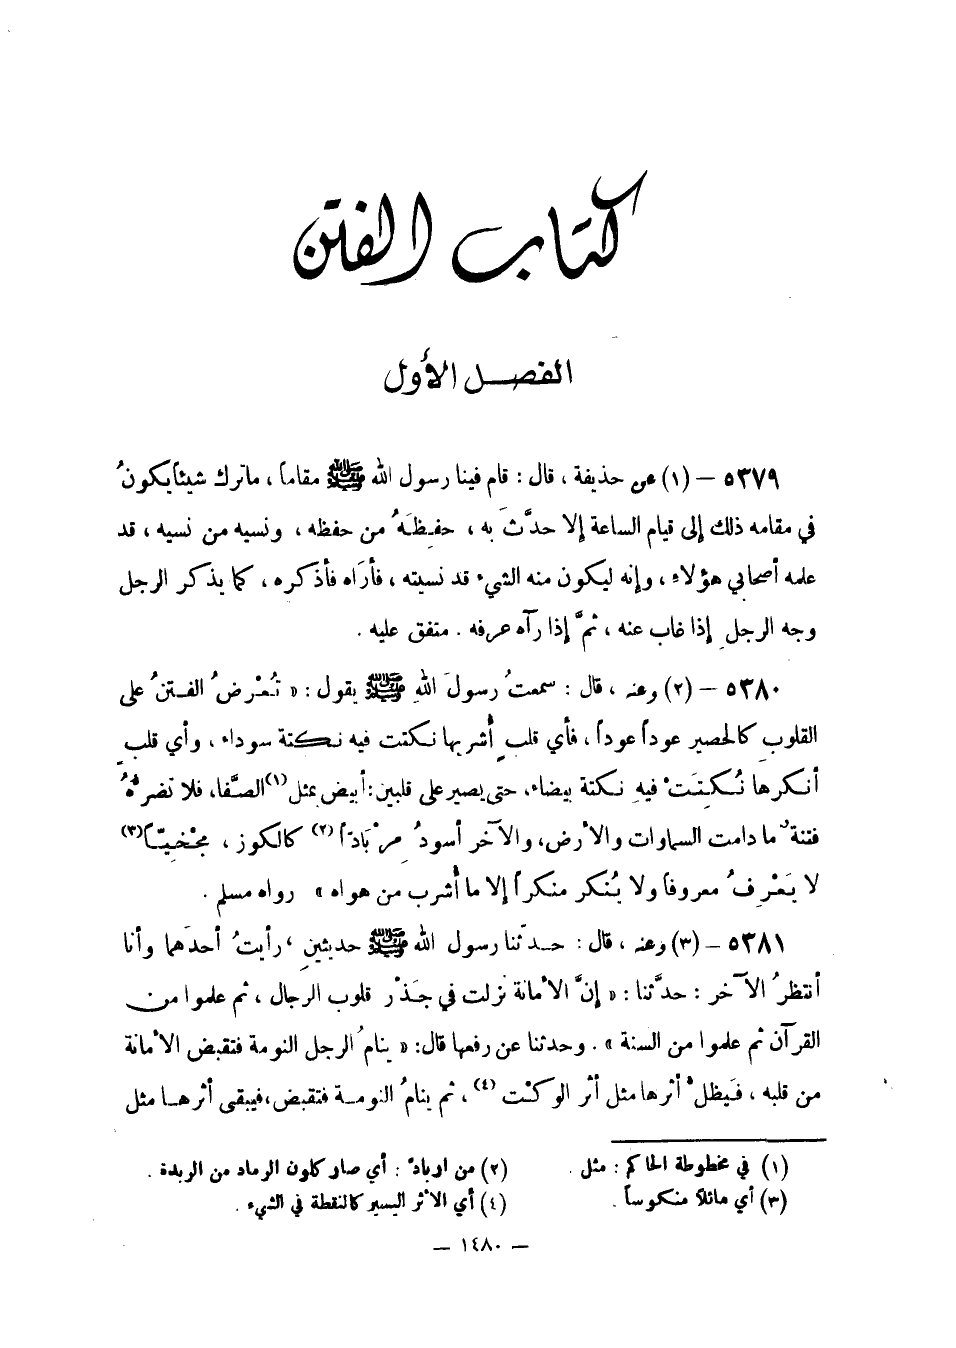 كتاب الفتن
الفصل الأول
٥٣٧٩ – (١) عن حذيفة ، قال : قام فينا رسول الله ﷺ مقاماً ، ماترك شيئاًيكونُ
في مقامه ذلك إلى قيام الساعة إلا حدَّثَ به ، حفِظَهُ من حفظه ، ونسيه من نسيه ، قد
علمه أصحابي هؤلاء ، وإنه ليكون منه الشيء قد نسيته ، فأرَاه فأذكره ، كما يذكر الرجل
وجه الرجلِ إذا غاب عنه ، ثمَّ إذا رآه عرفه . متفق عليه .
٥٣٨٠ – (٢) وعنه ، قال : سمعتُ رسولَ اللهِ ﷺ يقول : « تُعْرضُ الفتنُ على
القلوبِ كالحصير عوداً عوداً ، فأي قلبٍ أُشربها نكتت فيه نكتة سوداء ، وأي قلبٍ
أنكرها نُكِتَتْ فيهِ نكتة بيضاء، حتى يصير على قلبين: أبيض بمثل(١) الصَّفا، فلا تضرُّهُ
فتنةٌ ما دامت السماوات والأرض، والآخر أسودُ مِرْبَادَاً (٢) كالكوز ، مجْخِيّاً(٣)
لا يَعْرِفُ معروفاً ولا يُنكر منكراً إلا ما أُشرب من هواه » رواه مسلم .
٥٣٨١ – (٣) وعنه ، قال : حدّثنا رسول الله ﷺ حديثينِ ، رأيتُ أحدَهما وأنا
أنتظرُ الآخر : حدَّثنا : « إنَّ الأمانة نزلت في جَذْر قلوب الرجال ، ثم علموا من
القرآن ثم علموا من السنة » . وحدثنا عن رفعها قال: « ينامُ الرجل النومة فتقبض الأمانة
من قلبه ، فَيظلُّ أثرها مثل أثر الوكْت (٤) ، ثم ينامُ النومة فتقبض ،فيبقى أثرها مثل
(١) في مخطوطة الحاكم : مثل .
(٢) من اربادّ : أي صار كلون الرماد من الربدة .
(٣) أي مائلاً منكوساً .
(٤) أي الأثر اليسير كالنقطة في الشيء .
– ١٤٨٠ –